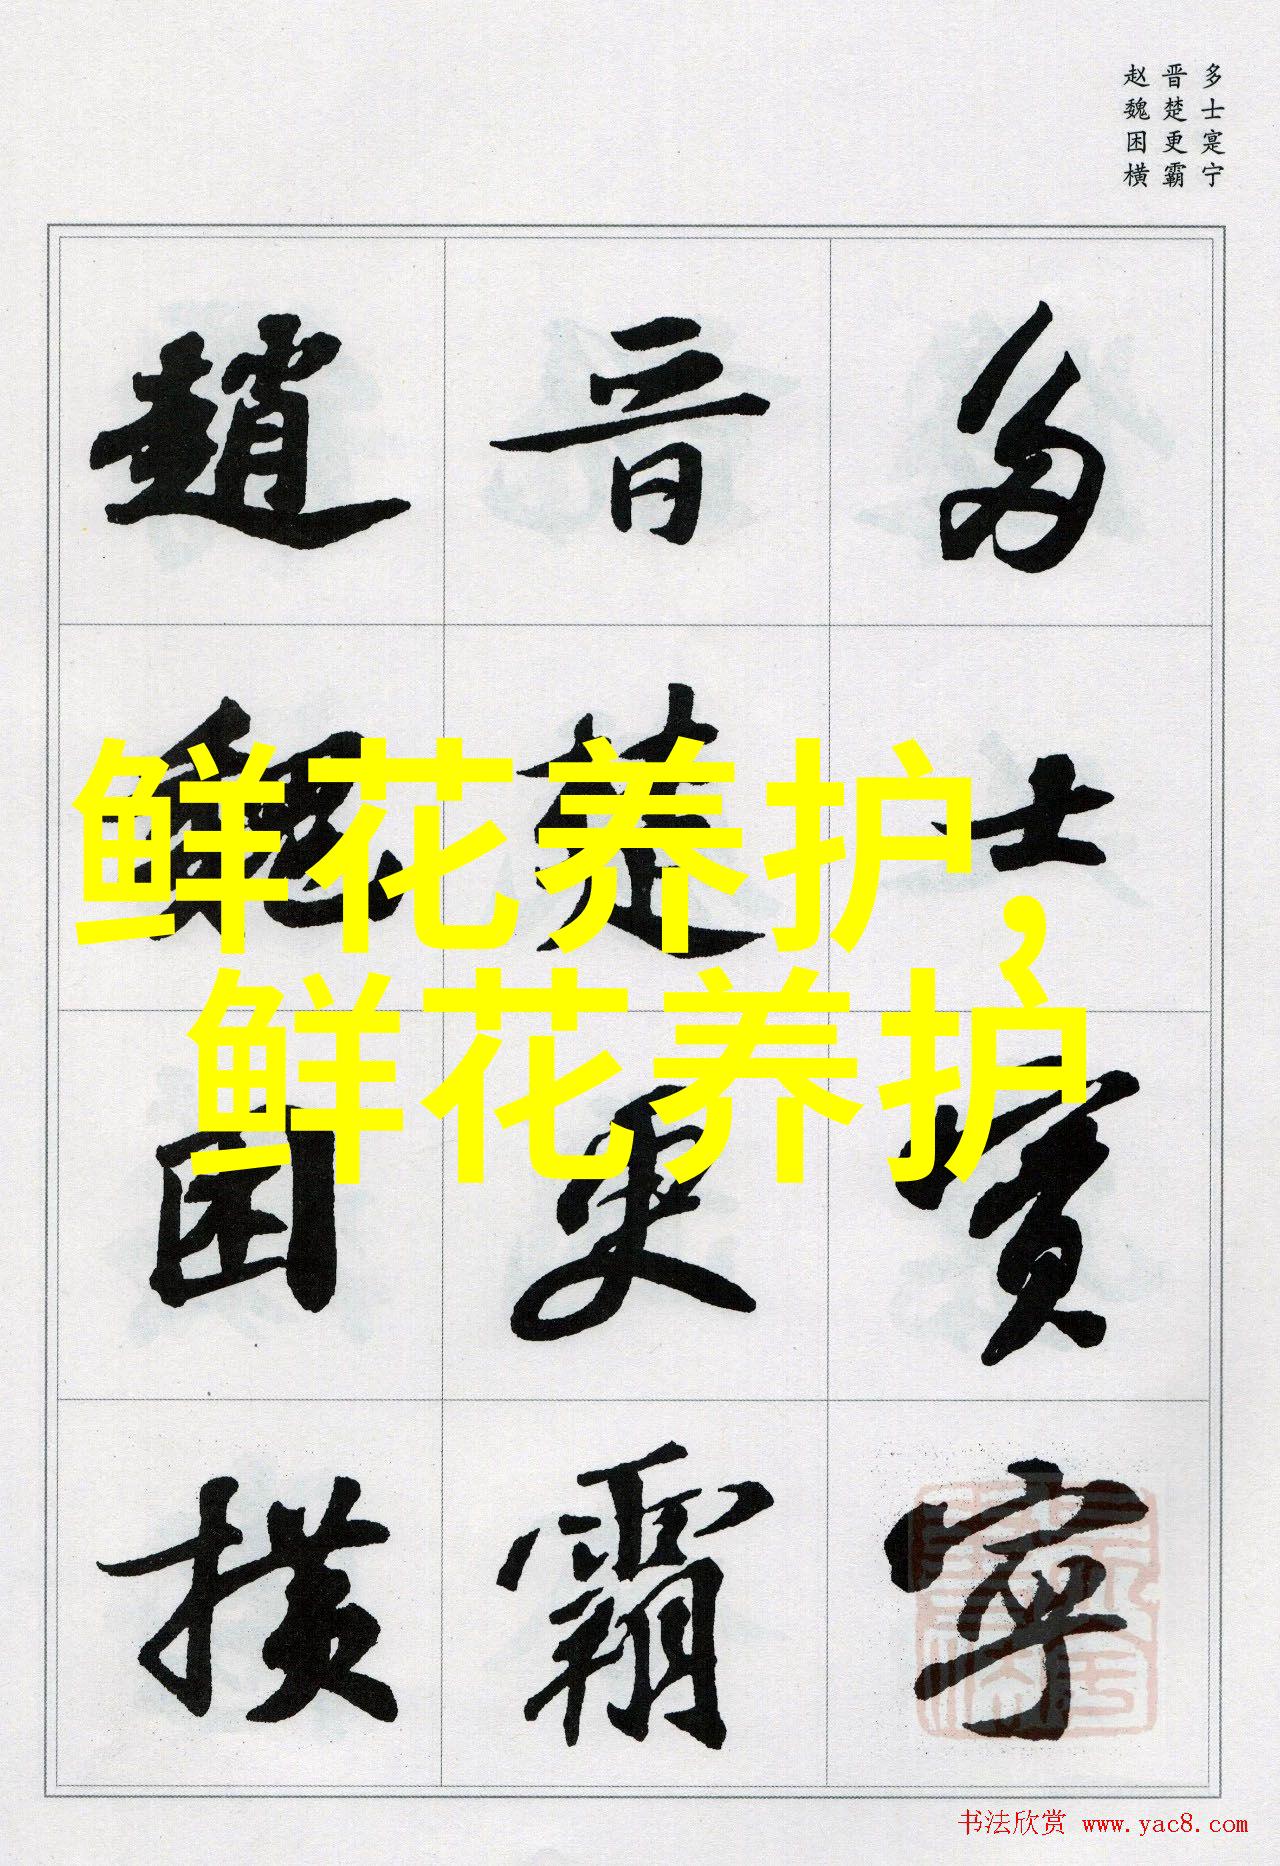 多士寔宁
晋楚更霸
赵魏困横
多士寔寧
晋楚更霸
趙魏困横
鲜花养护，
鲜花养护
书法欣赏 www.yac8.com